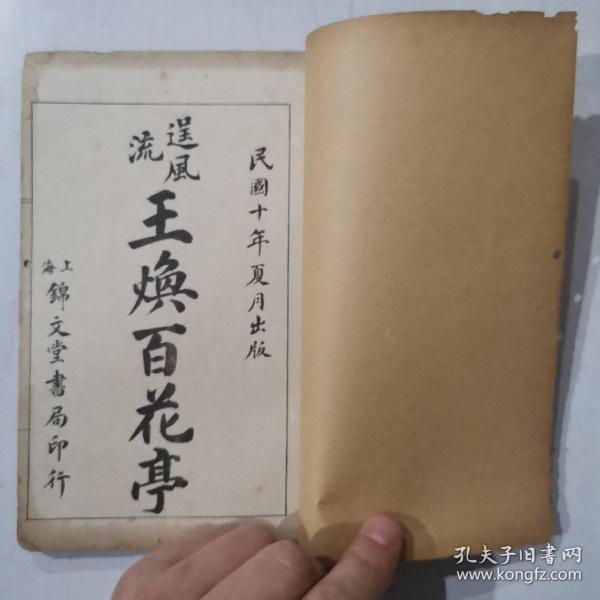 民國十年夏月出版
逞風流
王煥百花亭
上海
錦文堂書局印行
孔夫子旧书网
www.kongfz.com